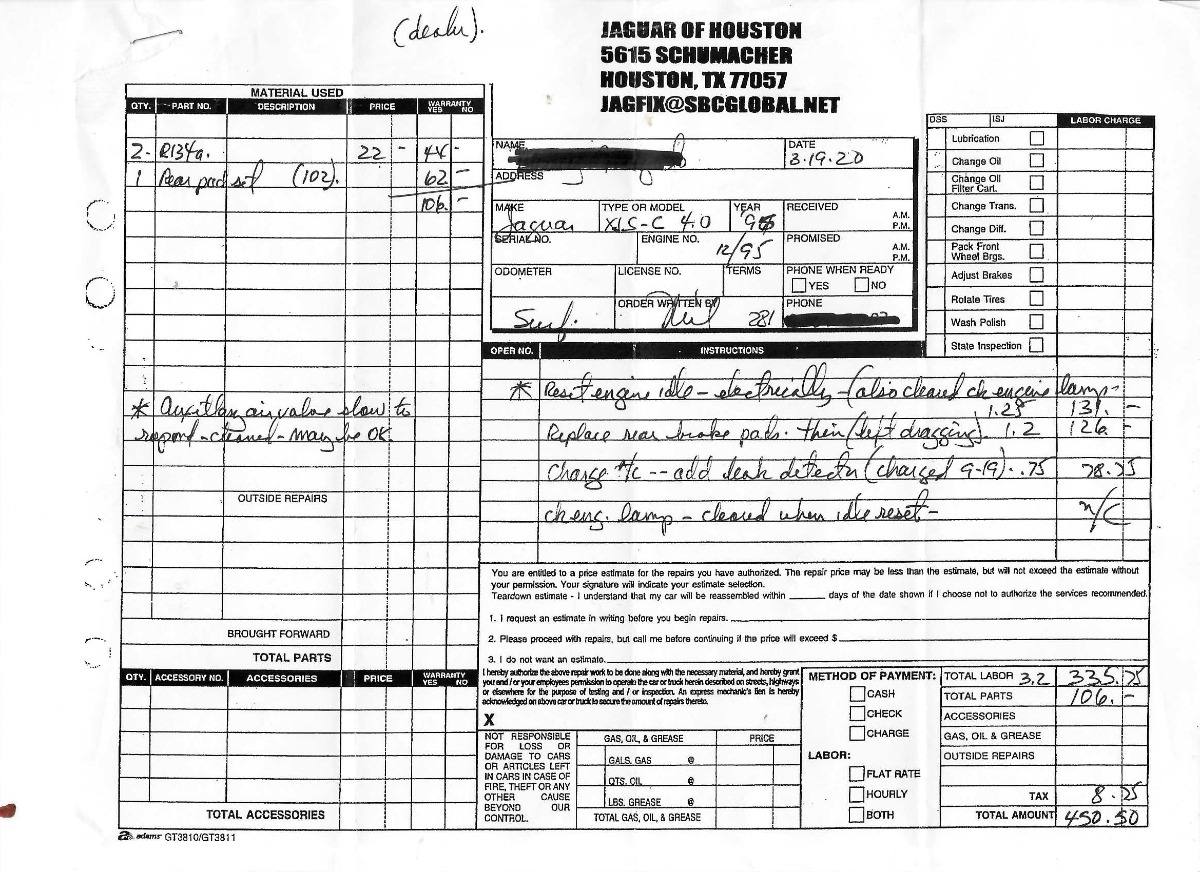 (dealer).
JAGUAR OF HOUSTON
5615 SCHUMACHER
HOUSTON, TX 77057
JAGFIX@SBCGLOBAL.NET
MATERIAL USED
QTY. PART NO. DESCRIPTION PRICE WARRANTY YES NO
2- R134a. 22 - 44 -
1 Rear pad set (102). 62 -
106. -
* Auxiliary air valve slow to
respond - cleaned - may be OK.
OUTSIDE REPAIRS
BROUGHT FORWARD
TOTAL PARTS
QTY. ACCESSORY NO. ACCESSORIES PRICE WARRANTY YES NO
TOTAL ACCESSORIES
adams GT3810/GT3811
NAME
DATE
3.19.20
ADDRESS
MAKE TYPE OR MODEL YEAR RECEIVED A.M.
Jaguar XJS-C 4.0 P.M.
SERIAL NO. ENGINE NO. PROMISED A.M.
12/95 P.M.
ODOMETER LICENSE NO. TERMS PHONE WHEN READY
YES NO
ORDER WRITTEN BY PHONE
281
DSS ISJ LABOR CHARGE
Lubrication
Change Oil
Change Oil
Filter Cart.
Change Trans.
Change Diff.
Pack Front
Wheel Brgs.
Adjust Brakes
Rotate Tires
Wash Polish
State Inspection
OPER NO. INSTRUCTIONS
* Reset engine idle - electrically - (also cleared ck engine lamp -
1.25 131. -
Replace rear brake pads. (left dragging). 1.2 126. -
Charge A/C -- add leak detector (charged 9-19). .75 78.75
ck eng. lamp - cleared when idle reset - n/C
You are entitled to a price estimate for the repairs you have authorized. The repair price may be less than the estimate, but will not exceed the estimate without
your permission. Your signature will indicate your estimate selection.
Teardown estimate - I understand that my car will be reassembled within ______ days of the date shown if I choose not to authorize the services recommended.
1. I request an estimate in writing before you begin repairs.
2. Please proceed with repairs, but call me before continuing if the price will exceed $
3. I do not want an estimate.
I hereby authorize the above repair work to be done along with the necessary material, and hereby grant
you and / or your employees permission to operate the car or truck herein described on streets, highways
or elsewhere for the purpose of testing and / or inspection. An express mechanic's lien is hereby
acknowledged on above car or truck to secure the amount of repairs thereto.
X
NOT RESPONSIBLE
FOR LOSS OR
DAMAGE TO CARS
OR ARTICLES LEFT
IN CARS IN CASE OF
FIRE, THEFT OR ANY
OTHER CAUSE
BEYOND OUR
CONTROL.
GAS, OIL, & GREASE PRICE
GALS. GAS @
QTS. OIL @
LBS. GREASE @
TOTAL GAS, OIL, & GREASE
METHOD OF PAYMENT:
CASH
CHECK
CHARGE
LABOR:
FLAT RATE
HOURLY
BOTH
TOTAL LABOR 3,2 335.75
TOTAL PARTS 106. -
ACCESSORIES
GAS, OIL & GREASE
OUTSIDE REPAIRS
TAX 8.75
TOTAL AMOUNT 450.50